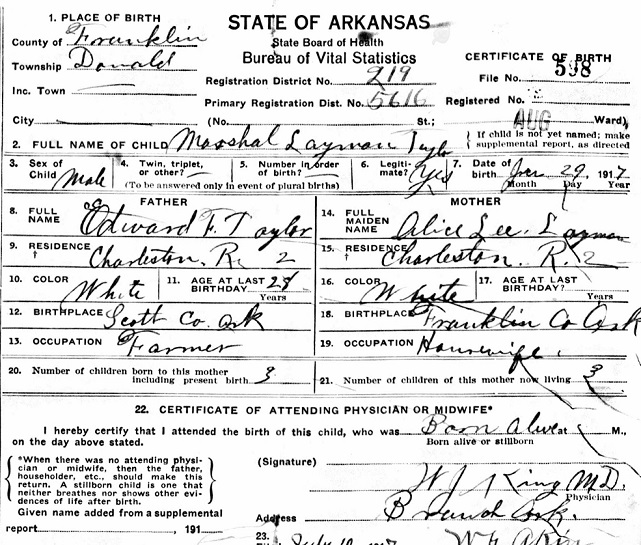 1. PLACE OF BIRTH
County of Franklin
Township Donald
Inc. Town
City
STATE OF ARKANSAS
State Board of Health
Bureau of Vital Statistics
Registration District No. 219
Primary Registration Dist. No. 5616
(No. St.; Ward)
CERTIFICATE OF BIRTH
File No. 598
Registered No.
AUG
2. FULL NAME OF CHILD Marshal Layman Taylor
{ If child is not yet named; make supplemental report, as directed
3. Sex of Child Male
4. Twin, triplet, or other?
5. Number in order of birth?
(To be answered only in event of plural births)
6. Legitimate? Yes
7. Date of birth 29 1917
Month Day Year
FATHER
8. FULL NAME Edward F. Taylor
9. RESIDENCE † Charleston. R. 2
10. COLOR White
11. AGE AT LAST BIRTHDAY 28
Years
12. BIRTHPLACE Scott Co. Ark
13. OCCUPATION Farmer
MOTHER
14. FULL MAIDEN NAME Alice Lee. Layman
15. RESIDENCE † Charleston. R. 2
16. COLOR White
17. AGE AT LAST BIRTHDAY?
Years
18. BIRTHPLACE Franklin Co Ark
19. OCCUPATION Housewife.
20. Number of children born to this mother including present birth 3
21. Number of children of this mother now living 3
22. CERTIFICATE OF ATTENDING PHYSICIAN OR MIDWIFE*
I hereby certify that I attended the birth of this child, who was Born Alive at M.,
Born alive or stillborn
on the day above stated.
{ *When there was no attending physi-
cian or midwife, then the father,
householder, etc., should make this
return. A stillborn child is one that
neither breathes nor shows other evi-
dences of life after birth. }
Given name added from a supplemental
report , 191
(Signature) W J King M.D.
Physician
Address Branch Ark.
23.
July 10 1917
W F Akin